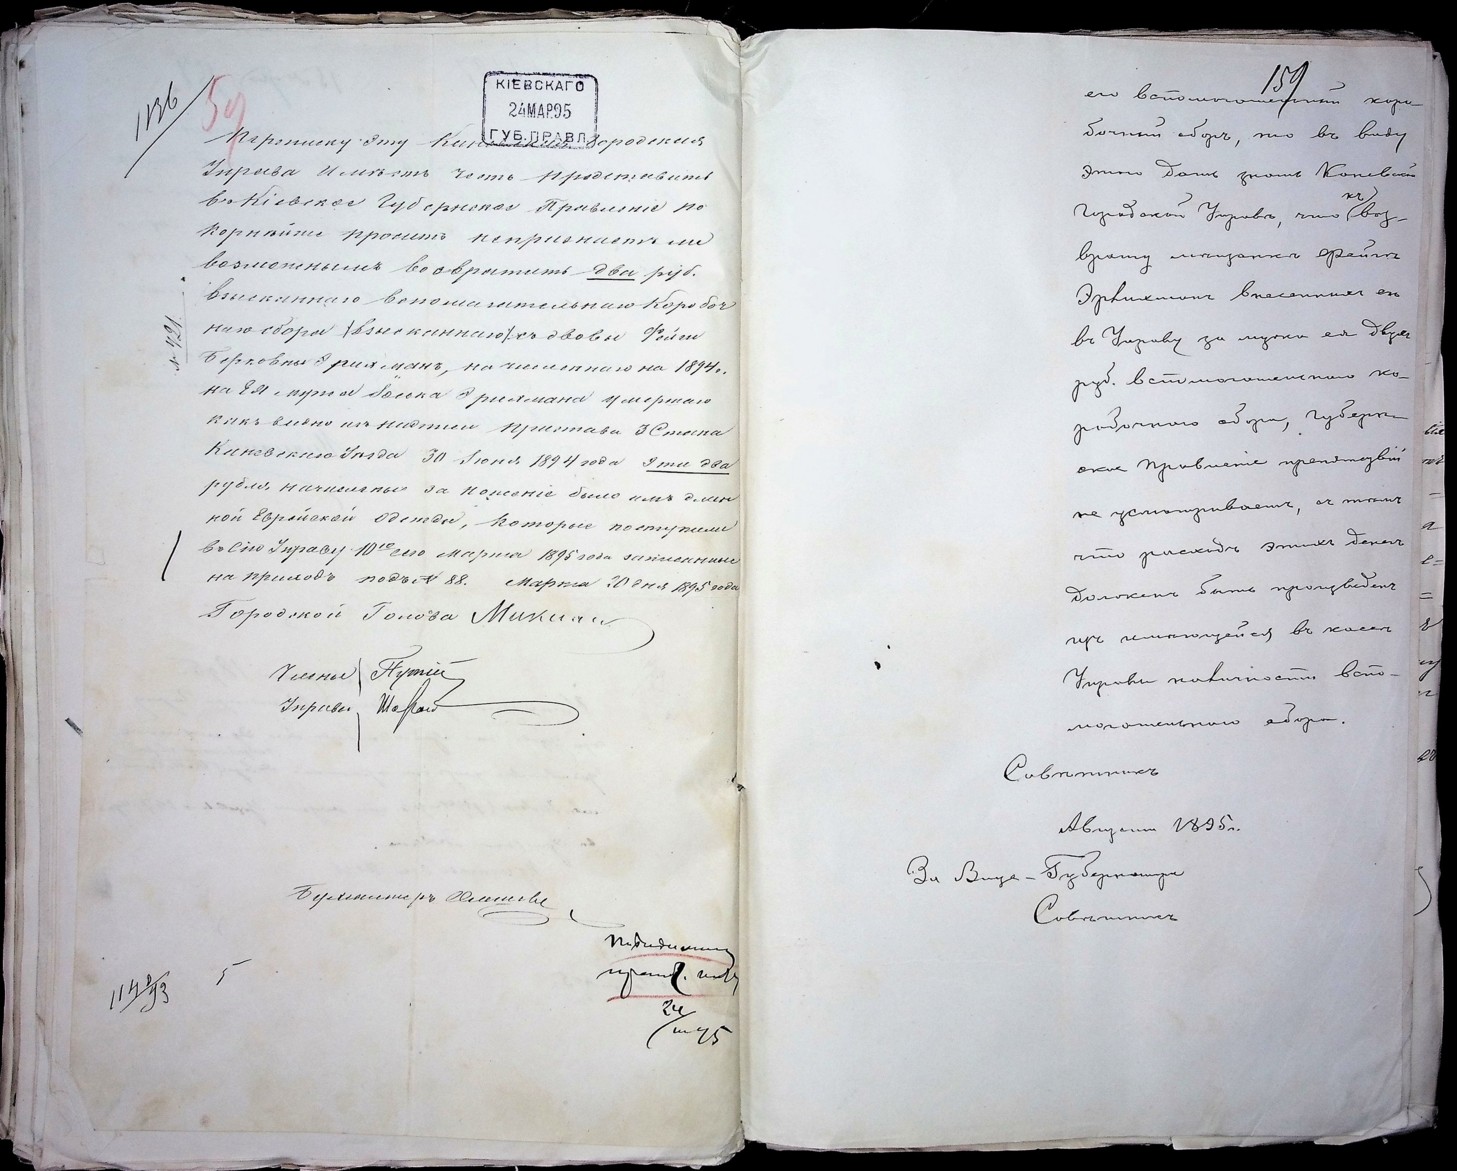 1136
59
КІЕВСКАГО
24 МАР. 95
ГУБ. ПРАВЛ.
Переписку эту Каневская Городская
Управа имѣетъ честь представить
въ Кіевское Губернское Правленіе по
корнѣйше просить непризнаетъ ли
возможнымъ возвратить два руб.
взысканнаго вспомагательнаго Коробоч
наго сбора (взысканнаго) съ вдовы Фейги
Берковны Эрлихманъ, на
на Ея мужа Эрлихмана умершаго
какъ видно изъ надписи Пристава 3 Стана
Каневскаго Уѣзда 30 Іюня 1894 года Эти два
рубля начисленые за ношеніе было имъ длин
ной Еврейской одежды, которые поступили
въ Сію Управу 10го сего Марта 1895 года записанные
на приходъ подъ № 88. Марта 20 дня 1895 года
№ 421.
Городской Голова
Члены
Управы
Бухгалтеръ
24/III 95
5
159
его вспомогательный коро-
бочный сборъ, то въ виду
этого дать знать Каневской
Городской Управѣ, что къ воз-
врату мѣщанкѣ Фейгѣ
Эрлихманъ внесенныхъ ею
въ Управу за мужа ея двухъ
руб. вспомогательнаго ко-
робочнаго сбора, Губерн-
ское Правленіе препятствій
не усматриваетъ, съ тѣмъ
что расходъ этихъ денегъ
долженъ быть произведенъ
изъ имѣющейся въ кассѣ
Управы наличности вспо-
могательнаго сбора.
Совѣтникъ
Августа 1895 г.
За Вице-Губернатора
Совѣтникъ